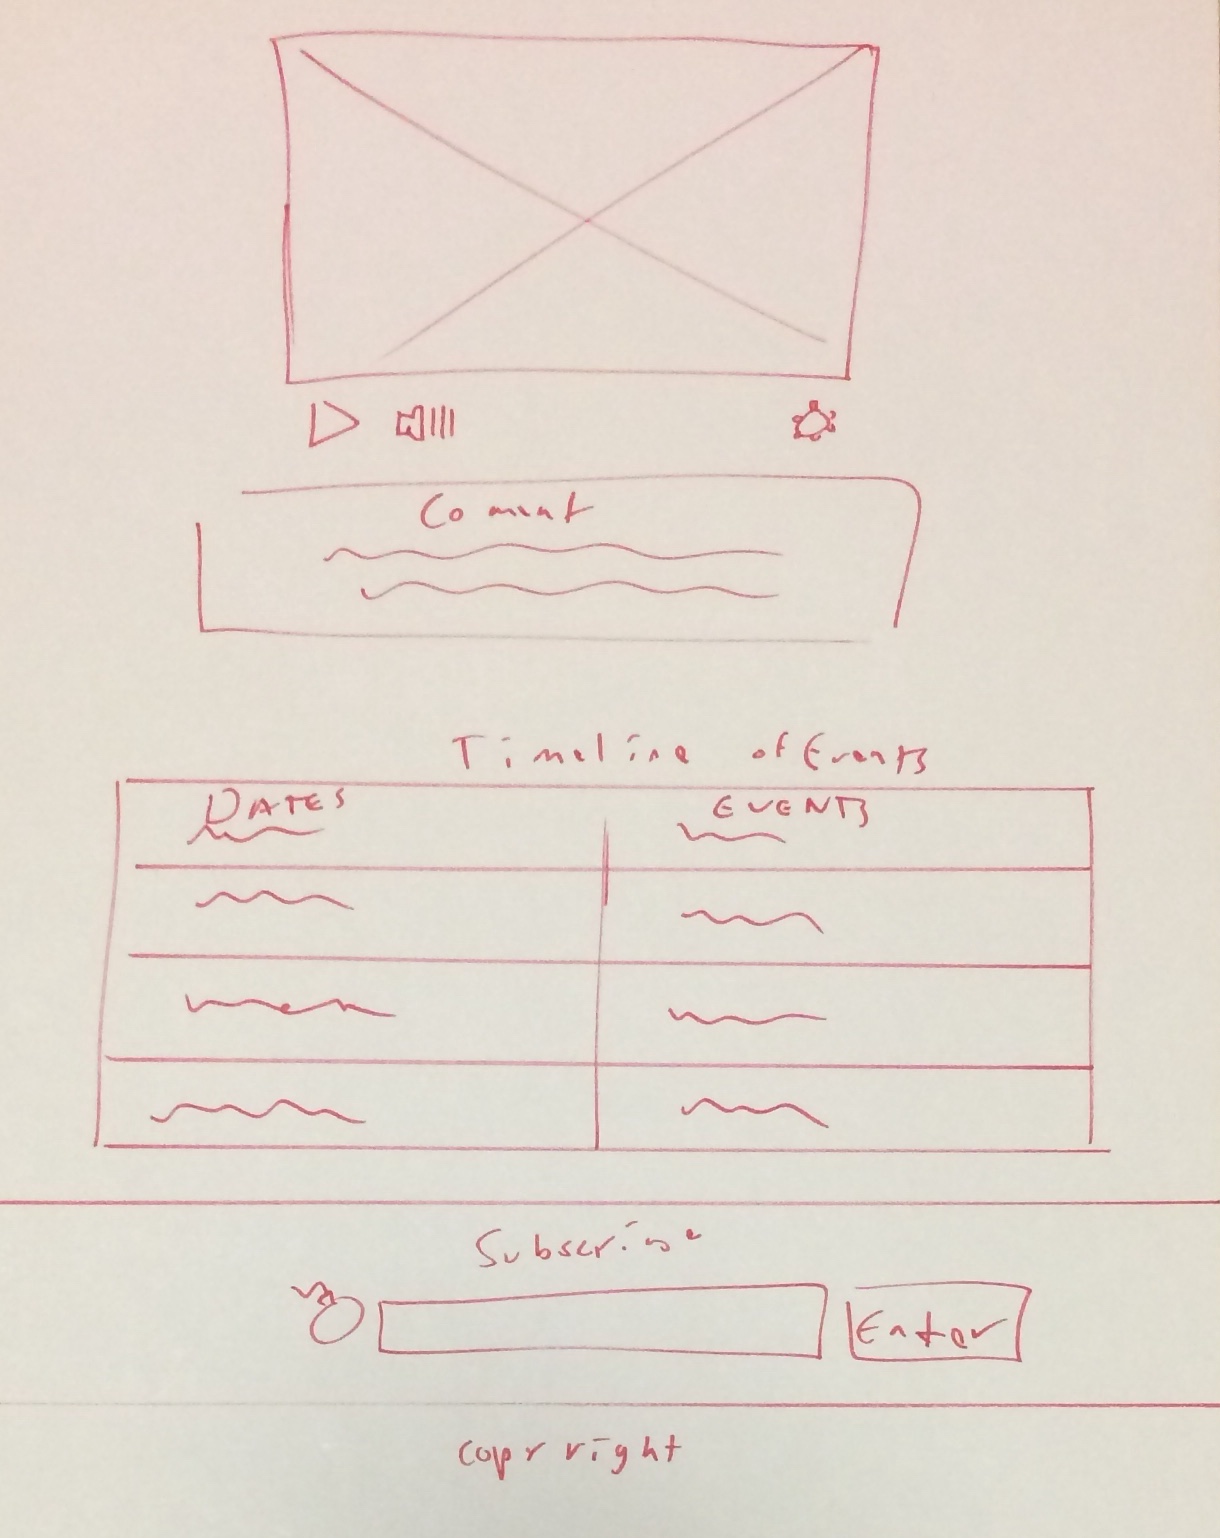 Comment
Timeline of Events
DATES EVENTS
Subscribe
Enter
Copyright